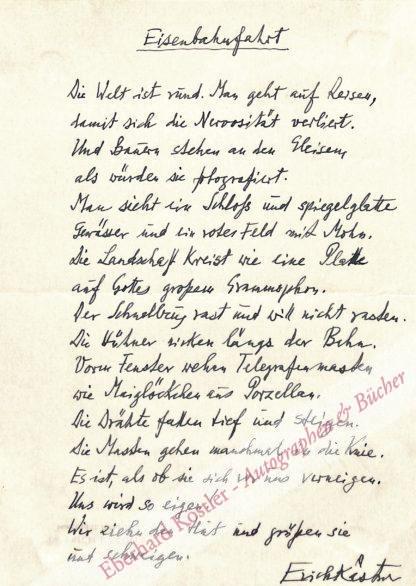 Eisenbahnfahrt
Die Welt ist rund. Man geht auf Reisen,
damit sich die Nervosität verliert.
Und Bauern stehen an den Gleisen,
als würden sie photografiert.
Man sieht ein Schloß und spiegelglatte
Gewässer und ein rotes Feld mit Mohn.
Die Landschaft kreist wie eine Platte
auf Gottes großem Grammophon.
Der Schnellzug rast und will nicht rasten.
Die Hühner nicken längs der Bahn.
Vorm Fenster wehen Telegrafenmasten
wie Maiglöckchen aus Porzellan.
Die Drähte fallen tief und steigen.
Die Masten gehen manchmal in die Knie.
Es ist, als ob sie sich vor uns verneigen.
Uns wird so eigen.
Wir ziehn den Hut und grüßen sie
und schweigen.
Erich Kästner
Eberhard Köstler - Autographen & Bücher